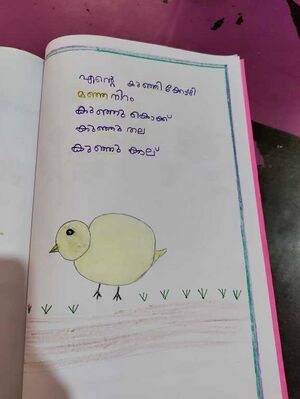 എന്റെ കുഞ്ഞിക്കോഴി
മഞ്ഞ നിറം
കുഞ്ഞു കൊക്ക്
കുഞ്ഞു തല
കുഞ്ഞു കാല്